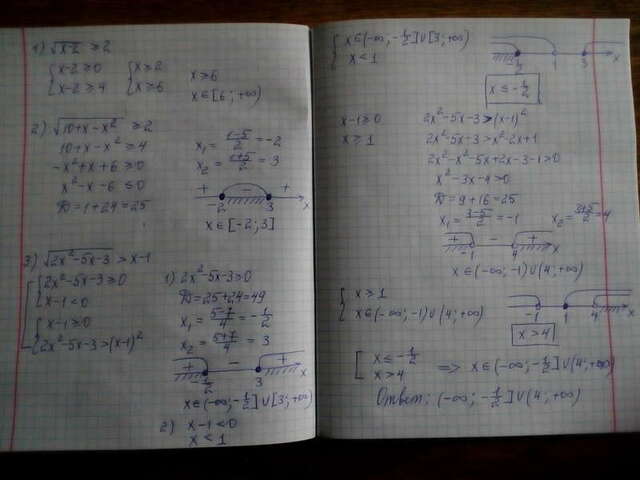 1) √(x-2) ≥ 2
{ x-2 ≥ 0   { x ≥ 2   x ≥ 6
{ x-2 ≥ 4   { x ≥ 6   x ∈ [6; +∞)
2) √(10+x-x²) ≥ 2
10+x-x² ≥ 4   x₁ = (1-5)/2 = -2
-x²+x+6 ≥ 0   x₂ = (1+5)/2 = 3
x²-x-6 ≤ 0   + - +
D = 1+24 = 25   -2 3 x
x ∈ [-2; 3]
3) √(2x²-5x-3) > x-1
[ { 2x²-5x-3 ≥ 0
{ x-1 < 0
{ x-1 ≥ 0
{ 2x²-5x-3 > (x-1)²
1) 2x²-5x-3 ≥ 0
D = 25+24 = 49
x₁ = (5-7)/4 = -1/2
x₂ = (5+7)/4 = 3
+ - +
1/2 3 x
x ∈ (-∞; -1/2] ∪ [3; +∞)
2) x-1 < 0
x < 1
{ x ∈ (-∞; -1/2] ∪ [3; +∞)
{ x < 1
1/2 1 3 x
x ≤ -1/2
x-1 ≥ 0   2x²-5x-3 > (x-1)²
x ≥ 1   2x²-5x-3 > x²-2x+1
2x²-x²-5x+2x-3-1 > 0
x²-3x-4 > 0
D = 9+16 = 25
x₁ = (3-5)/2 = -1   x₂ = (3+5)/2 = 4
+ - +
-1 4 x
x ∈ (-∞; -1) ∪ (4; +∞)
{ x ≥ 1
{ x ∈ (-∞; -1) ∪ (4; +∞)
-1 1 4 x
x > 4
[ x ≤ -1/2
[ x > 4   => x ∈ (-∞; -1/2] ∪ (4; +∞)
Ответ: (-∞; -1/2] ∪ (4; +∞)